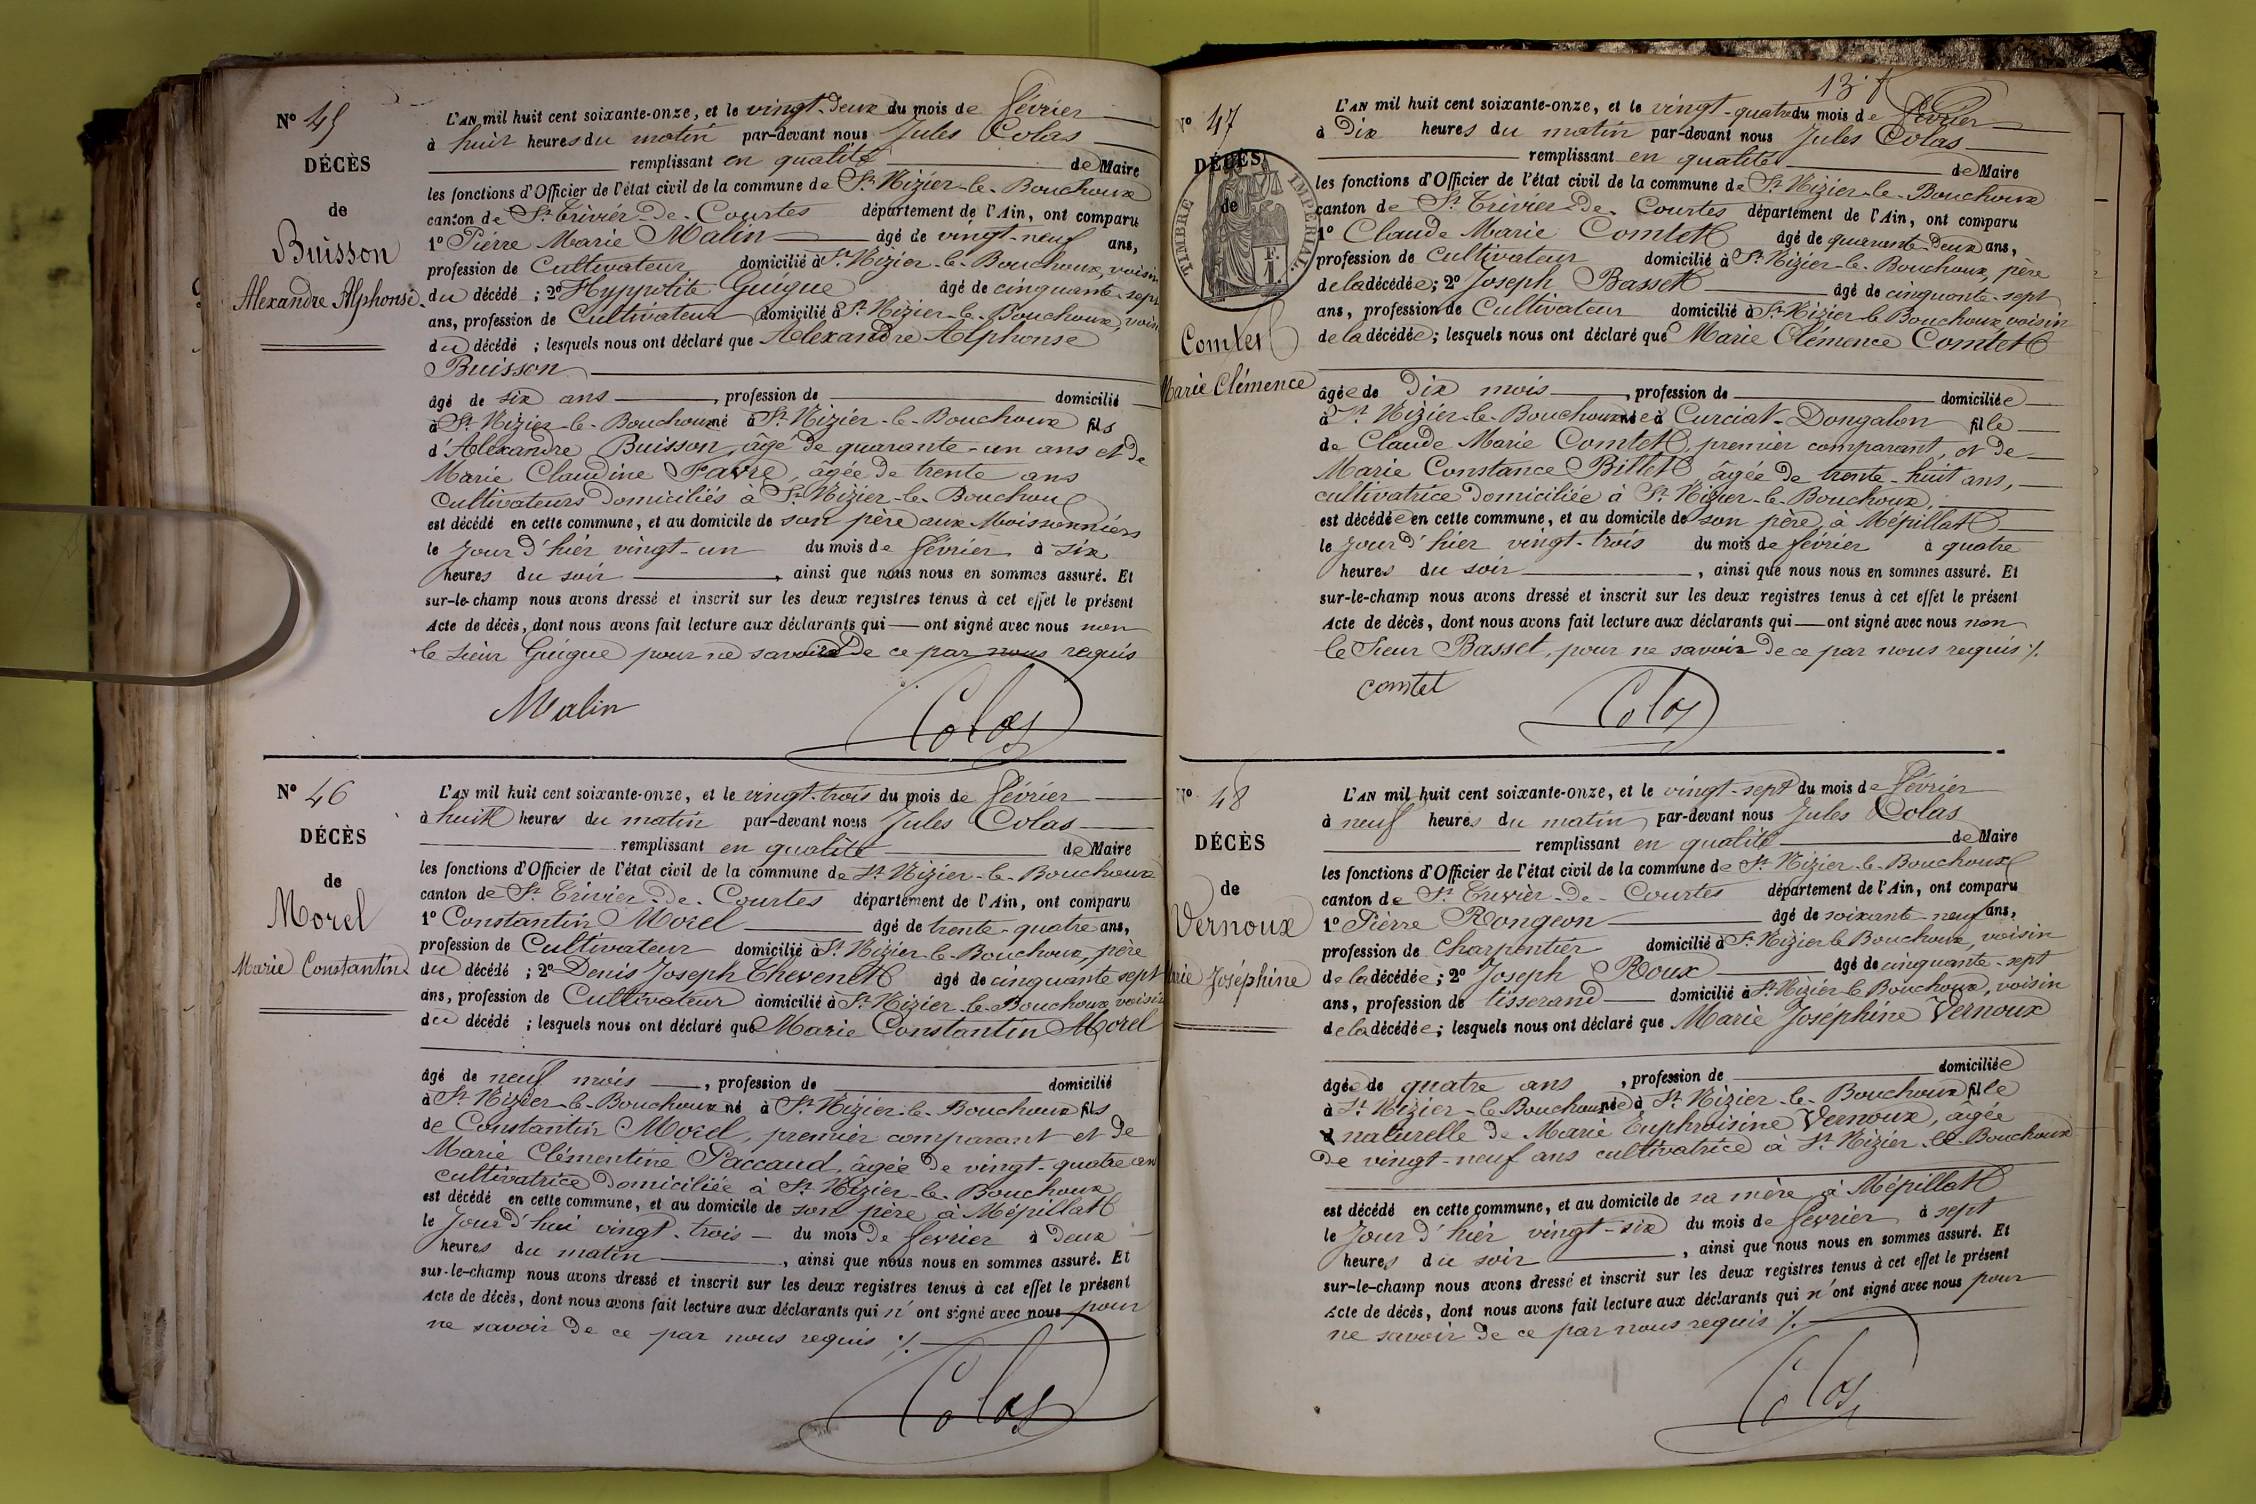 N° 45
DÉCÈS
de
Buisson
Alexandre Alphonse
L'AN mil huit cent soixante-onze, et le vingt-deux du mois de février
à huit heures du matin par-devant nous Jules Colas
remplissant en qualité de Maire
les fonctions d'Officier de l'état civil de la commune de St Nizier-le-Bouchoux
canton de St Trivier-de-Courtes département de l'Ain, ont comparu
1° Pierre Marie Malin âgé de vingt-neuf ans,
profession de Cultivateur domicilié à St Nizier-le-Bouchoux, voisin
du décédé ; 2° Hyppolite Guigue âgé de cinquante-sept
ans, profession de Cultivateur domicilié à St Nizier-le-Bouchoux, voisin
du décédé ; lesquels nous ont déclaré que Alexandre Alphonse
Buisson
âgé de six ans, profession de domicilié
à St Nizier-le-Bouchoux né à St Nizier-le-Bouchoux fils
d'Alexandre Buisson, âgé de quarante-un ans et de
Marie Claudine Favre, âgée de trente ans
Cultivateurs domiciliés à St Nizier-le-Bouchoux
est décédé en cette commune, et au domicile de son père aux Moissonniers
le jour d'hier vingt-un du mois de février à six
heures du soir, ainsi que nous nous en sommes assuré. Et
sur-le-champ nous avons dressé et inscrit sur les deux registres tenus à cet effet le présent
Acte de décès, dont nous avons fait lecture aux déclarants qui ont signé avec nous non
le sieur Guigue pour ne savoir de ce par nous requis
Malin
Colas
N° 46
DÉCÈS
de
Morel
Marie Constantin
L'AN mil huit cent soixante-onze, et le vingt-trois du mois de février
à huit heures du matin par-devant nous Jules Colas
remplissant en qualité de Maire
les fonctions d'Officier de l'état civil de la commune de St Nizier-le-Bouchoux
canton de St Trivier-de-Courtes département de l'Ain, ont comparu
1° Constantin Morel âgé de trente-quatre ans,
profession de Cultivateur domicilié à St Nizier-le-Bouchoux, père
du décédé ; 2° Denis Joseph Thevenet âgé de cinquante sept
ans, profession de Cultivateur domicilié à St Nizier-le-Bouchoux voisin
du décédé ; lesquels nous ont déclaré que Marie Constantin Morel
âgé de neuf mois, profession de domicilié
à St Nizier-le-Bouchoux né à St Nizier-le-Bouchoux fils
de Constantin Morel, premier comparant et de
Marie Clémentine Paccaud, âgée de vingt-quatre ans
cultivatrice domiciliée à St Nizier-le-Bouchoux
est décédé en cette commune, et au domicile de son père à Mépillat
le jour d'hui vingt-trois du mois de fevrier à deux
heures du matin, ainsi que nous nous en sommes assuré. Et
sur-le-champ nous avons dressé et inscrit sur les deux registres tenus à cet effet le présent
Acte de décès, dont nous avons fait lecture aux déclarants qui n'ont signé avec nous pour
ne savoir de ce par nous requis ./.
Colas
13
N° 47
DÉCÈS
de
TIMBRE IMPÉRIAL
Comtet
Marie Clémence
L'AN mil huit cent soixante-onze, et le vingt-quatre du mois de février
à dix heures du matin par-devant nous Jules Colas
remplissant en qualité de Maire
les fonctions d'Officier de l'état civil de la commune de St Nizier-le-Bouchoux
canton de St Trivier-de-Courtes département de l'Ain, ont comparu
1° Claude Marie Comtet âgé de quarante-deux ans,
profession de cultivateur domicilié à St Nizier-le-Bouchoux, père
de la décédée ; 2° Joseph Basset âgé de cinquante-sept
ans, profession de Cultivateur domicilié à St Nizier-le-Bouchoux, voisin
de la décédée ; lesquels nous ont déclaré que Marie Clémence Comtet
âgée de dix mois, profession de domiciliée
à St Nizier-le-Bouchoux née à Curciat-Dongalon fille
de Claude Marie Comtet, premier comparant, et de
Marie Constance Billet âgée de trente-huit ans,
cultivatrice domiciliée à St Nizier-le-Bouchoux,
est décédée en cette commune, et au domicile de son père, à Mépillat
le jour d'hier vingt-trois du mois de février à quatre
heures du soir, ainsi que nous nous en sommes assuré. Et
sur-le-champ nous avons dressé et inscrit sur les deux registres tenus à cet effet le présent
Acte de décès, dont nous avons fait lecture aux déclarants qui ont signé avec nous non
le Sieur Basset, pour ne savoir de ce par nous requis ./.
comtet
Colas
N° 48
DÉCÈS
de
Vernoux
Marie Joséphine
L'AN mil huit cent soixante-onze, et le vingt-sept du mois de février
à neuf heures du matin par-devant nous Jules Colas
remplissant en qualité de Maire
les fonctions d'Officier de l'état civil de la commune de St Nizier-le-Bouchoux
canton de St Trivier-de-Courtes département de l'Ain, ont comparu
1° Pierre Rongeon âgé de soixante-neuf ans,
profession de Charpentier domicilié à St Nizier le Bouchoux, voisin
de la décédée ; 2° Joseph Roux âgé de cinquante-sept
ans, profession de tisserand domicilié à St Nizier-le-Bouchoux, voisin
de la décédée ; lesquels nous ont déclaré que Marie Joséphine Vernoux
âgée de quatre ans, profession de domiciliée
à St Nizier-le-Bouchoux née à St Nizier-le-Bouchoux fille
naturelle de Marie Euphroisine Vernoux, âgée
de vingt-neuf ans cultivatrice à St Nizier-le-Bouchoux
est décédé en cette commune, et au domicile de sa mère à Mépillat
le jour d'hier vingt-six du mois de fevrier à sept
heures du soir, ainsi que nous nous en sommes assuré. Et
sur-le-champ nous avons dressé et inscrit sur les deux registres tenus à cet effet le présent
Acte de décès, dont nous avons fait lecture aux déclarants qui n'ont signé avec nous pour
ne savoir de ce par nous requis ./.
Colas